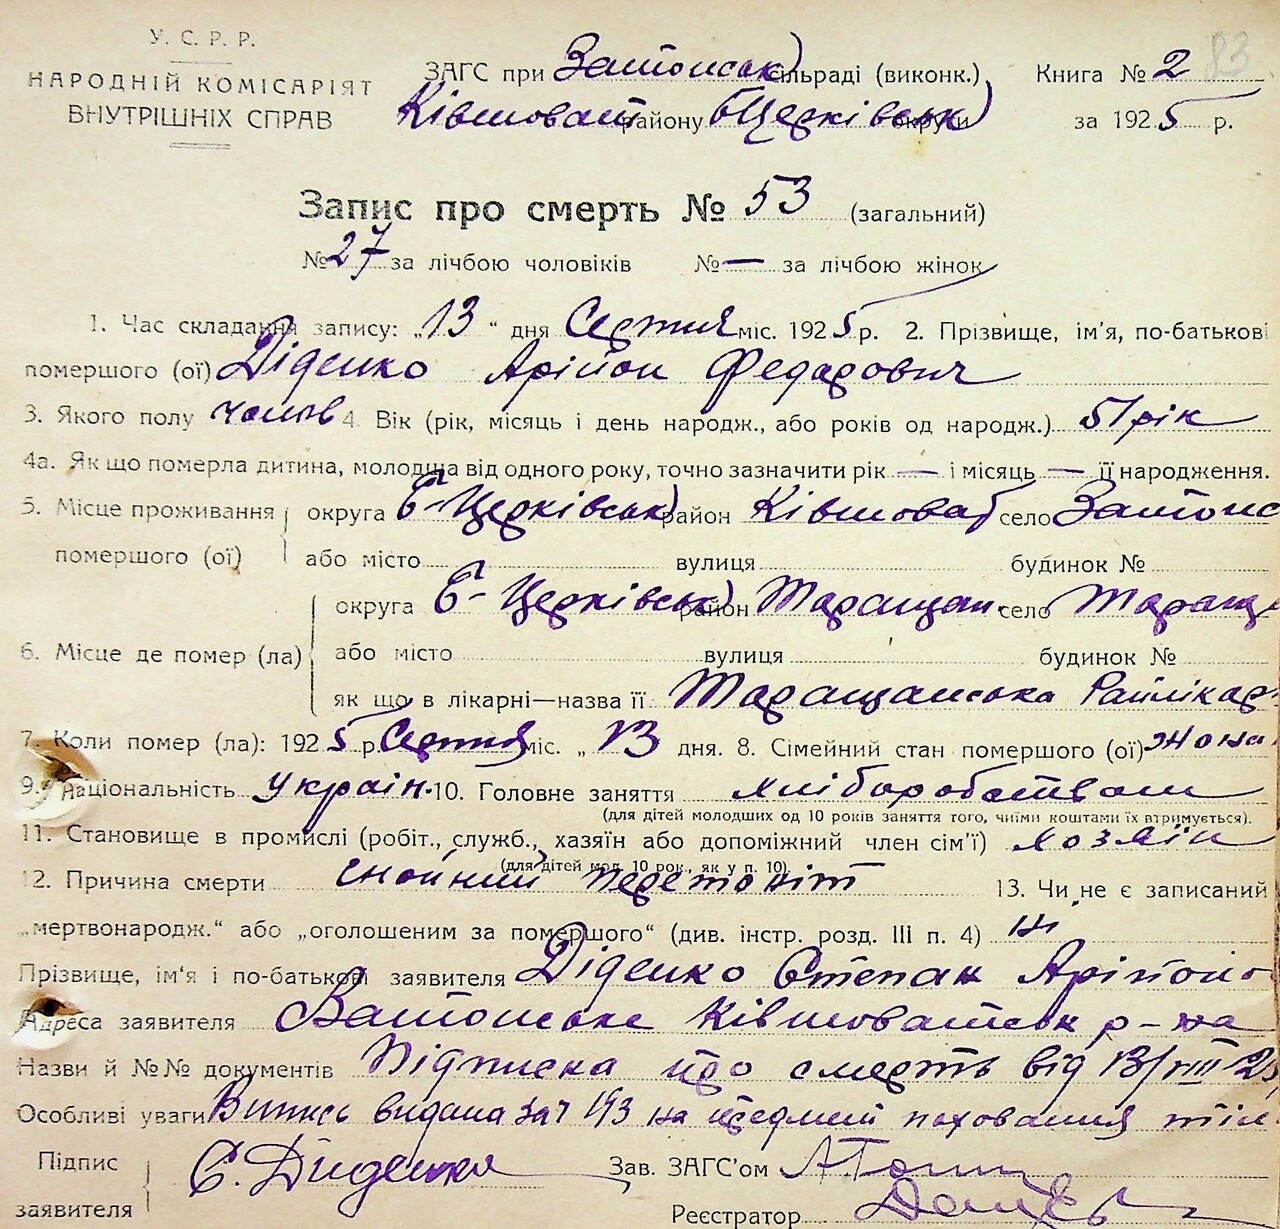 У. С. Р. Р.
НАРОДНІЙ КОМІСАРІЯТ
ВНУТРІШНІХ СПРАВ
ЗАГС при Затонськ) сільраді (виконк.) Книга № 2 83
Ківшоват району Б Церківськ) округи за 1925 р.
Запис про смерть № 53 (загальний)
№ 27 за лічбою чоловіків № — за лічбою жінок
1. Час складання запису: „13“ дня Серпня міс. 1925 р. 2. Прізвище, ім'я, по-батькові
помершого (ої) Діденко Арійон Федорович
3. Якого полу чолов 4. Вік (рік, місяць і день народж., або років од народж.) 51 рік
4а. Як що померла дитина, молодша від одного року, точно зазначити рік — і місяць — її народження.
5. Місце проживання округа Б-Церківськ) район Ківшоват село Затонс
помершого (ої) або місто вулиця будинок №
округа Б-Церківськ) район Таращан. село Таращ
6. Місце де помер (ла) або місто вулиця будинок №
як що в лікарні—назва її Таращанська Райлікар
7. Коли помер (ла): 1925 р. Серпня міс. „13 дня. 8. Сімейний стан помершого (ої) жона
9. Національність Україн. 10. Головне заняття хліборобством
(для дітей молодших од 10 років заняття того, чиїми коштами їх втримується).
11. Становище в промислі (робіт., служб., хазяїн або допоміжний член сім'ї) хозяїн
(для дітей мол. 10 рок., як у п. 10)
12. Причина смерти гнойний перетоніт 13. Чи не є записаний
„мертвонародж.“ або „оголошеним за помершого“ (див. інстр. розд. III п. 4) ні
Прізвище, ім'я і по-батькові заявителя Діденко Степан Арійоно
Адреса заявителя Затонське Ківшоватськ р-на
Назви й №№ документів Підписка про смерть від 13/VIII 25
Особливі уваги Випись видана за № 193 на предмет поховання тіл
Підпис
заявителя С. Диденко Зав. ЗАГС'ом
Реєстратор